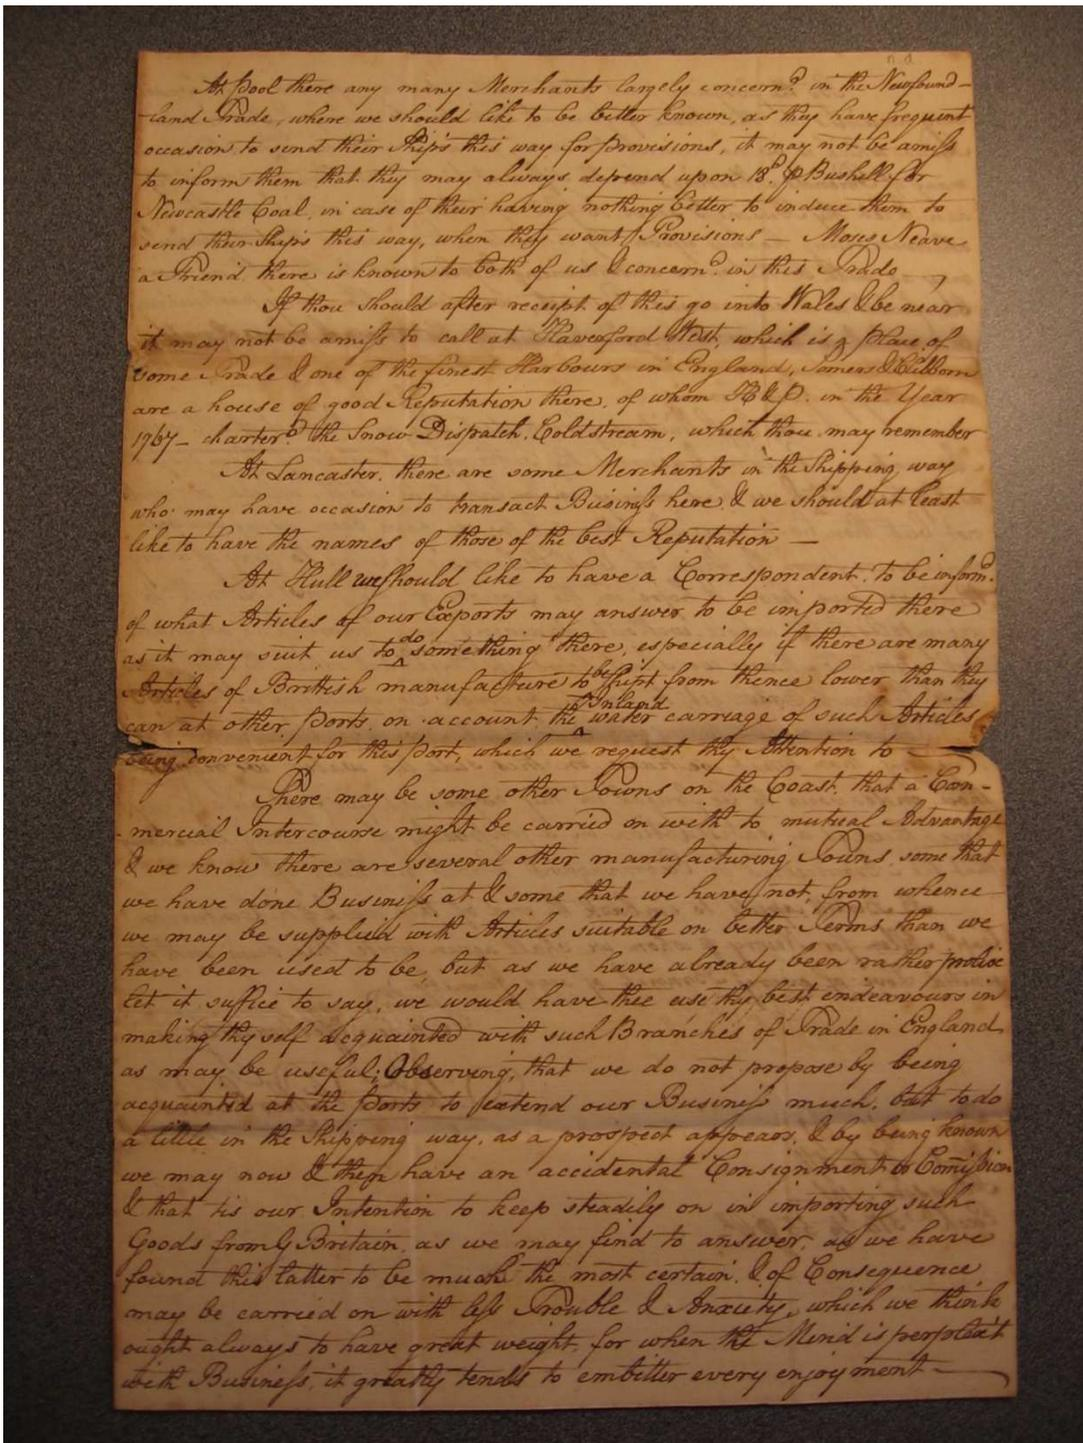 At Pool there any many Merchants largely concern'd in the Newfound-
-land Trade, where we should like to be better known, as they have frequent
occasion to send their Ships this way for provisions, it may not be amiss
to inform them that they may always depend upon 18d. ⅌ Bushell for
Newcastle Coal, in case of their having nothing better to induce them to
send their Ships this way, when they want Provisions — Moses Neave
a Friend there is known to both of us & concern'd in this Trade —
If thou should after receipt of this go into Wales & be near
it may not be amiss to call at Haverford West, which is a place of
some Trade & one of the finest Harbours in England, Somers & Clibborn
are a house of good Reputation there, of whom R & P. in the Year
1767 — charter'd the Snow Dispatch, Coldstream, which thou may remember
At Lancaster, there are some Merchants in the Shipping way
who may have occasion to transact Business here & we should at least
like to have the names of those of the best Reputation —
At Hull we should like to have a Correspondent, to be inform'd
of what Articles of our Exports may answer to be imported there
as it may suit us to do something there, especially if there are many
Articles of Brittish manufacture to be shipt from thence lower than they
can at other Ports, on account the Inland water carriage of such Articles
being convenient for this port, which we request thy Attention to —
There may be some other Towns on the Coast, that a Com-
-mercial Intercourse might be carried on with to mutual Advantage
& we know there are several other manufacturing Towns, some that
we have done Business at & some that we have not, from whence
we may be supplied with Articles suitable on better Terms than we
have been used to be, but as we have already been rather prolix
let it suffice to say, we would have thee use thy best endeavours in
making thy self acquainted with such Branches of Trade in England
as may be useful; Observing, that we do not propose by being
acquainted at the Ports to extend our Business much, but to do
a little in the Shipping way, as a prospect appears, & by being known
we may now & then have an accidental Consignment or Comission
& that tis our Intention to keep steadily on in importing such
Goods from G Britain, as we may find to answer, as we have
found this latter to be much the most certain, & of Consequence
may be carried on with less Trouble & Anxiety, which we think
ought always to have great weight, for when the Mind is perplext
with Business, it greatly tends to embitter every enjoyment —